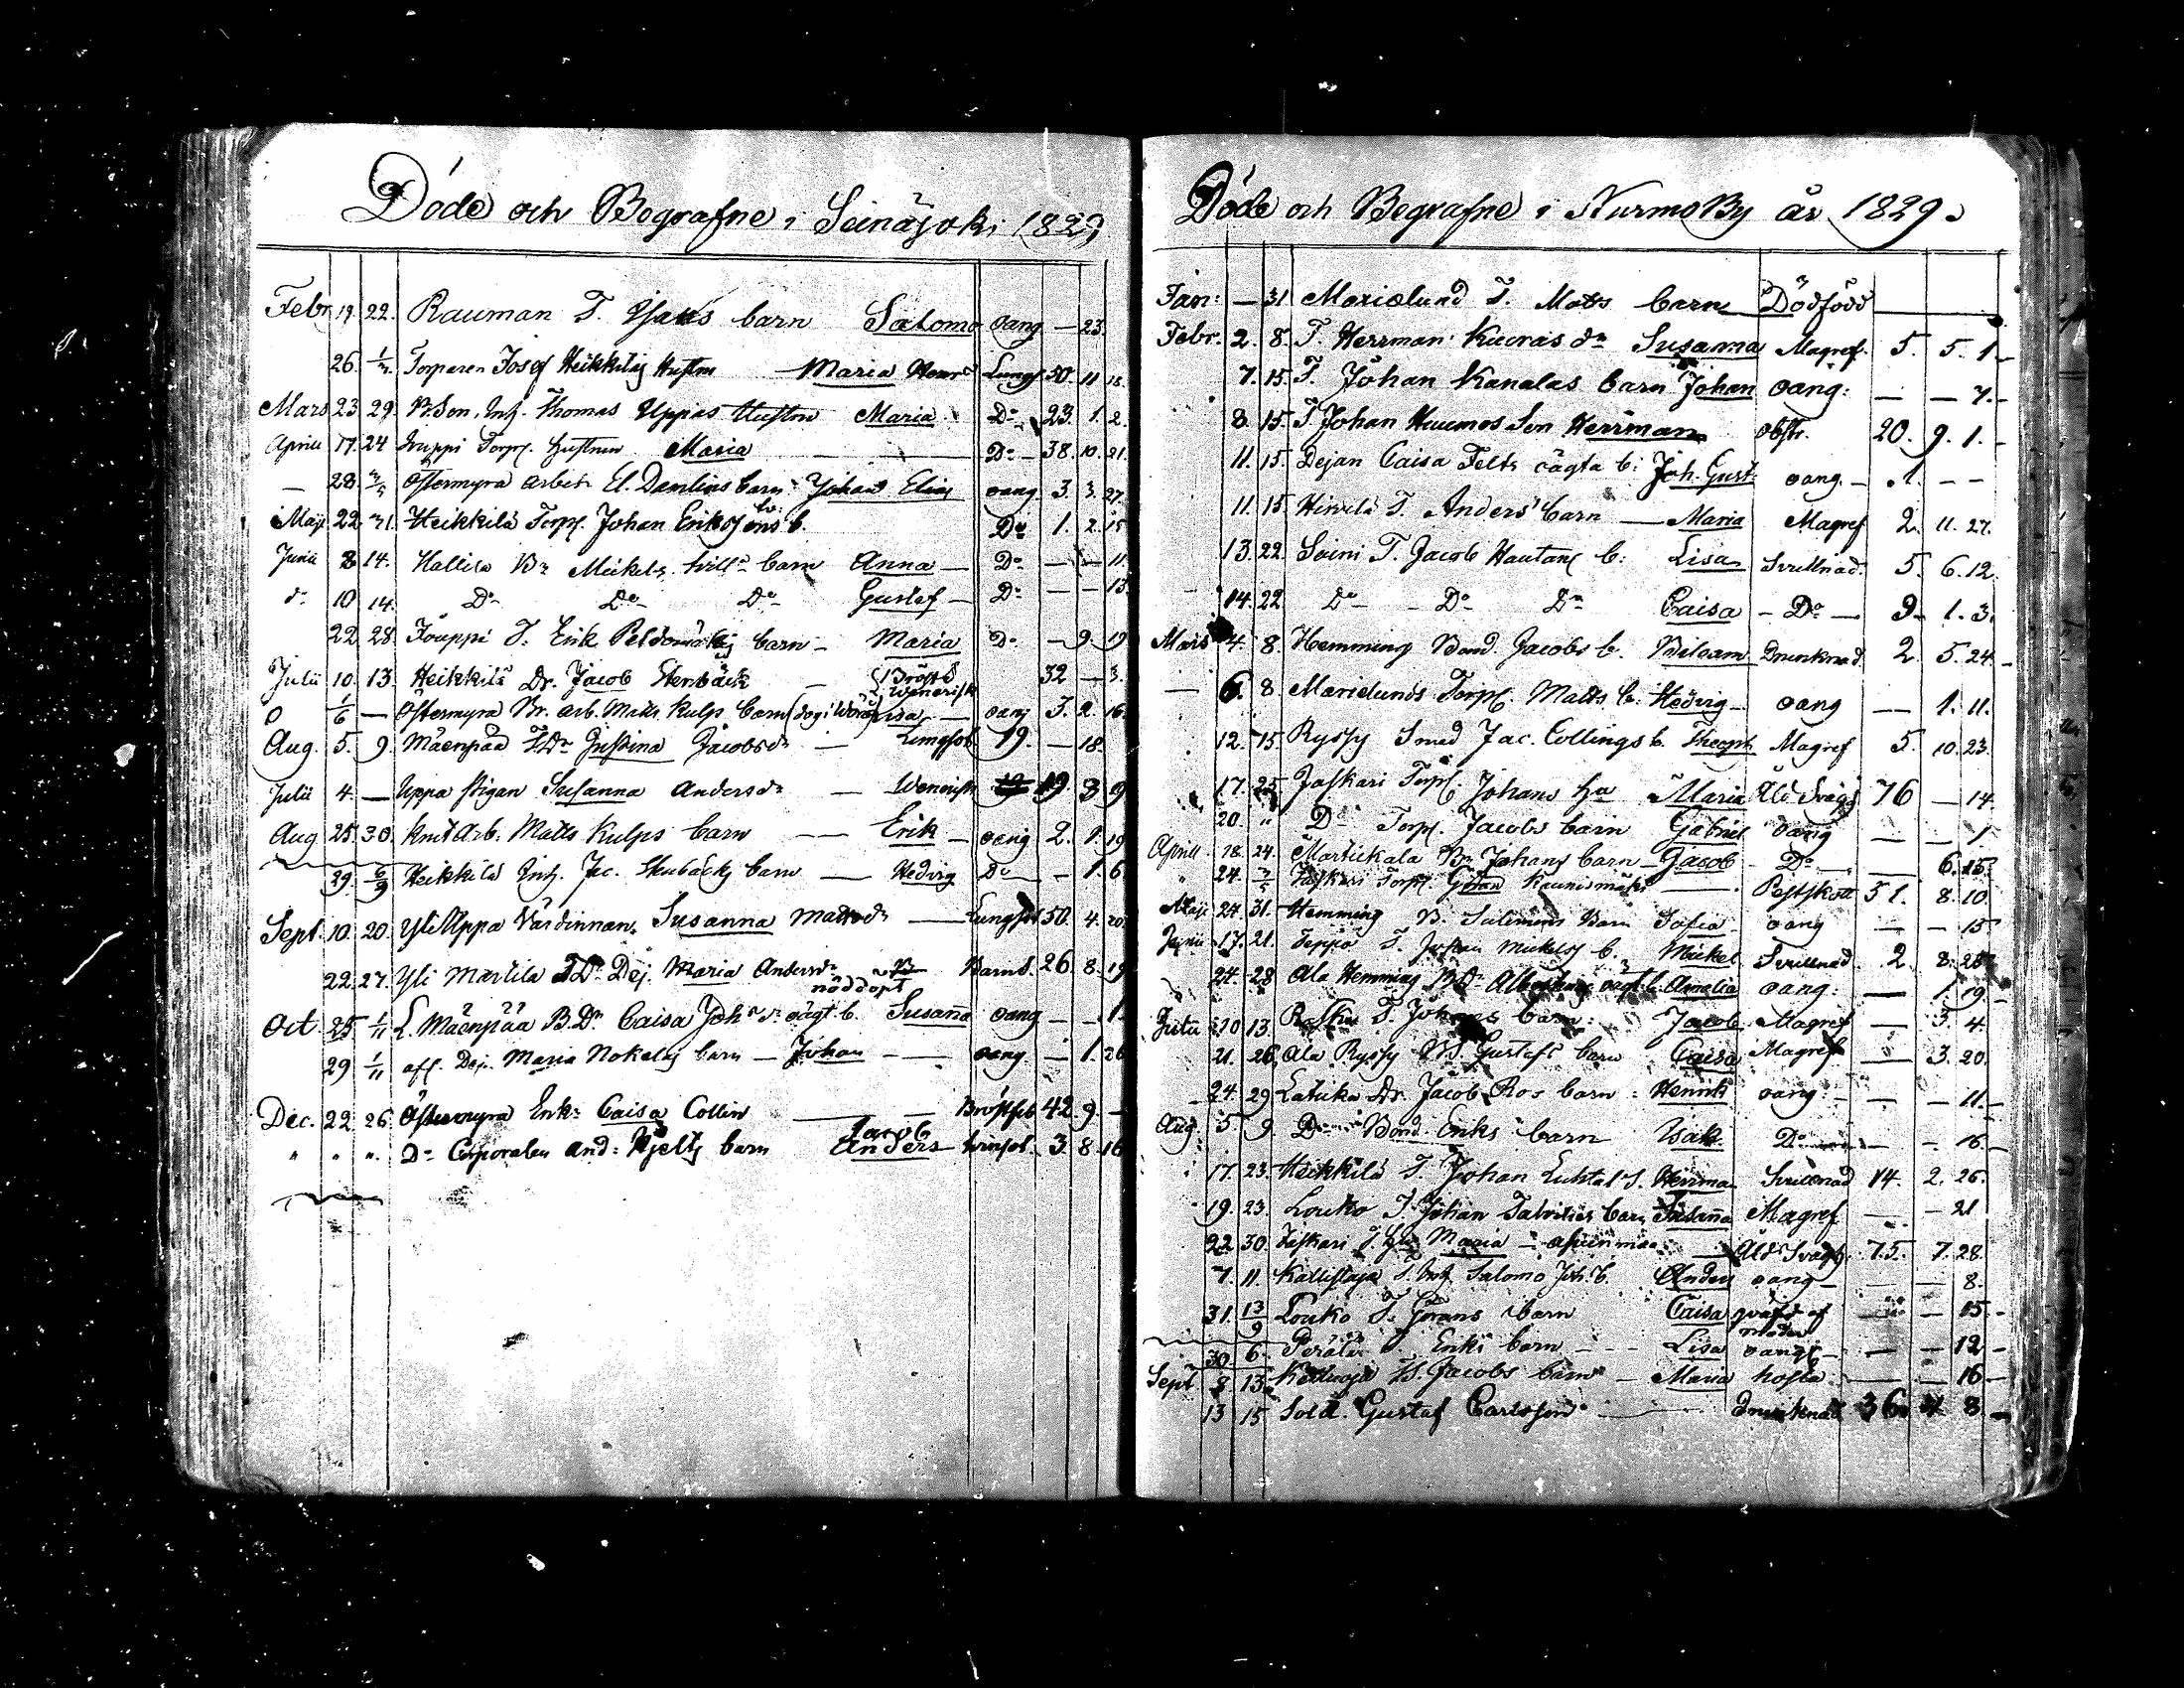 Döde och Begrafne i Seinäjoki 1829
Febr. 19. 22. Rauman T. Isaks barn Salomo oang — 23.
26. 1/3. Torparen Josef Heikkiläs Hustru Maria Henrd Lungs. 50. 11 18.
Mars 23 29. B. Son, Inh. Thomas Uppas Hustru Maria Do 23. 1. 2.
Aprill 17. 24 Torp. Hustrun Maria Do 38. 10. 21.
— 28. 3/5 Östermyra arbets El. Damlins barn Johan Elias oang 3. 3. 27.
Maji 22 31. Heikkilä Torp. Johan Erikssons b. Do 1. 2. 15
Junii 8 14. Hallila Bn Mickels barn Anna — Do — — 11.
do 10 14. Do Do Do Gustaf — Do — — 13.
22 28. Jouppi T. Erik Peldomäkis barn — Maria Do — 9. 19
Julii 10. 13. Heikkilä Dr. Jacob Stenbäck — Bröst & Venerisk 32 — 3.
1/6 — Östermyra Br. arb. Matts Kulps barn Lisa — oang 3. 2. 16.
Aug. 5. 9. Mäenpää Justina Jacobsdr — Lungsot 19. — 18.
Julii 4. — Uppa Susanna Andersdr — Venerisk 19 3 9
Aug 25. 30. Arb. Matts Kulps barn — — Erik — oang 2. 1. 19
29. 6/9 Heikkilä Inh. Jac. Stenbäcks barn — Hedvig Do — — 1. 6.
Sept. 10. 20. Yli Uppa Värdinnan. Susanna Mattsdr — Lungsot 50. 4. 20
22. 27. Yli Martila Dej. Maria Andersdr — Barns. 26 8. 19
nöddöpt
Oct 25 1/11 L. Mäenpää B. Dr Caisa Johsdr oägt b. Susanna oang — — 1.
29 1/11 aff. Dej. Maria Nokelas barn — Johan — — oang. — 1. 26
Dec. 22 26. Östermyra Enk: Caisa Collin — — Bröstsot 42 9. —
" " " Do Corporalen And: Hjelts barn Jacob Anders 3. 8. 16
Döde och Begrafne i Nurmo By år 1829.
Jan: — 31 Marielund T. Matts barn Dödfödd
Febr. 2. 8. T. Herrman Kuoras dr Susanna Magref. 5. 5. 1.
7. 15. T. Johan Kanalas barn Johan oang: — — 7.
8. 15. T Johan Huumos Son Herrman obstr. 20. 9. 1.
11. 15. Dejan Caisa Felts oägta b: Joh. Gust. oang. — 1. — —
11. 15 Hirvelä T. Anders barn — Maria Magref 2. 11. 27.
13. 22 Soini T. Jacob Hautans b: Lisa Svullnad. 5. 6. 12.
14. 22 Do Do Do Caisa — Do — 9. 1. 3.
Mars 4. 8. Hemming Bond. Jacobs b. Bileam Drunknad. 2. 5. 24.
— 6. 8. Marielunds Torp. Matts b. Hedvig — oang — 1. 11.
12. 15. Ryssy Smed Jac. Collings b. Theoph Magref 5. 10. 23.
17. 25 Jaskari Torp. Johans Hu Maria Åld. Svagh 76 — 14.
20. " Do Torp. Jacobs barn Gabriel oang — — 1
Aprill 18. 24. Martikala Bn Johans barn — Jacob — Do — 6. 15.
24. 3/5 Jaskari Torp. Göran Kaunismäki — 51. 8. 10.
Maji 24. 31. Hemming B. Salomons Barn Sofia — oang — — 15
Junii 17. 21. Seppo T. Johan Mickels b. Mickel Svullnad 2. 8. 25
24. 28 Ala Hemming oägt. b. Amalia oang: — 1. 19
Julii 10 13. T. Johans barn: Jacob. Magref — 3. 4.
21. 26 Ala Ryssy B. Gustafs barn Caisa Magref — 3. 20.
24. 29 Latuka Dr. Jacob Ros barn: Henrik oang: — — 11.
Aug 5 9 Do Bond. Eriks barn Isak. Do — — 16.
17. 23. Heikkilä T. Johan Luhtal s. Herrman Svullnad 14. 2. 26.
19. 23. Louko T Johan Talvities barn Susanna Magref — — 21
22 30. Jaskari T. Maria — — Åld. Svagh. 75. 7. 28.
7. 11. Kallistaja T. Salomo Joh. b. Anders oang — — 8.
31. 13/9 Louko T. Görans barn Caisa qväfd af modren — — 15
30 6. Perälä T. Eriks barn — — Lisa oang — — 12
Sept 8 13. B. Jacobs barn — Maria hosta — — 16
13 15 Sold. Gustaf Carlsson — Drunknad 36 4 8